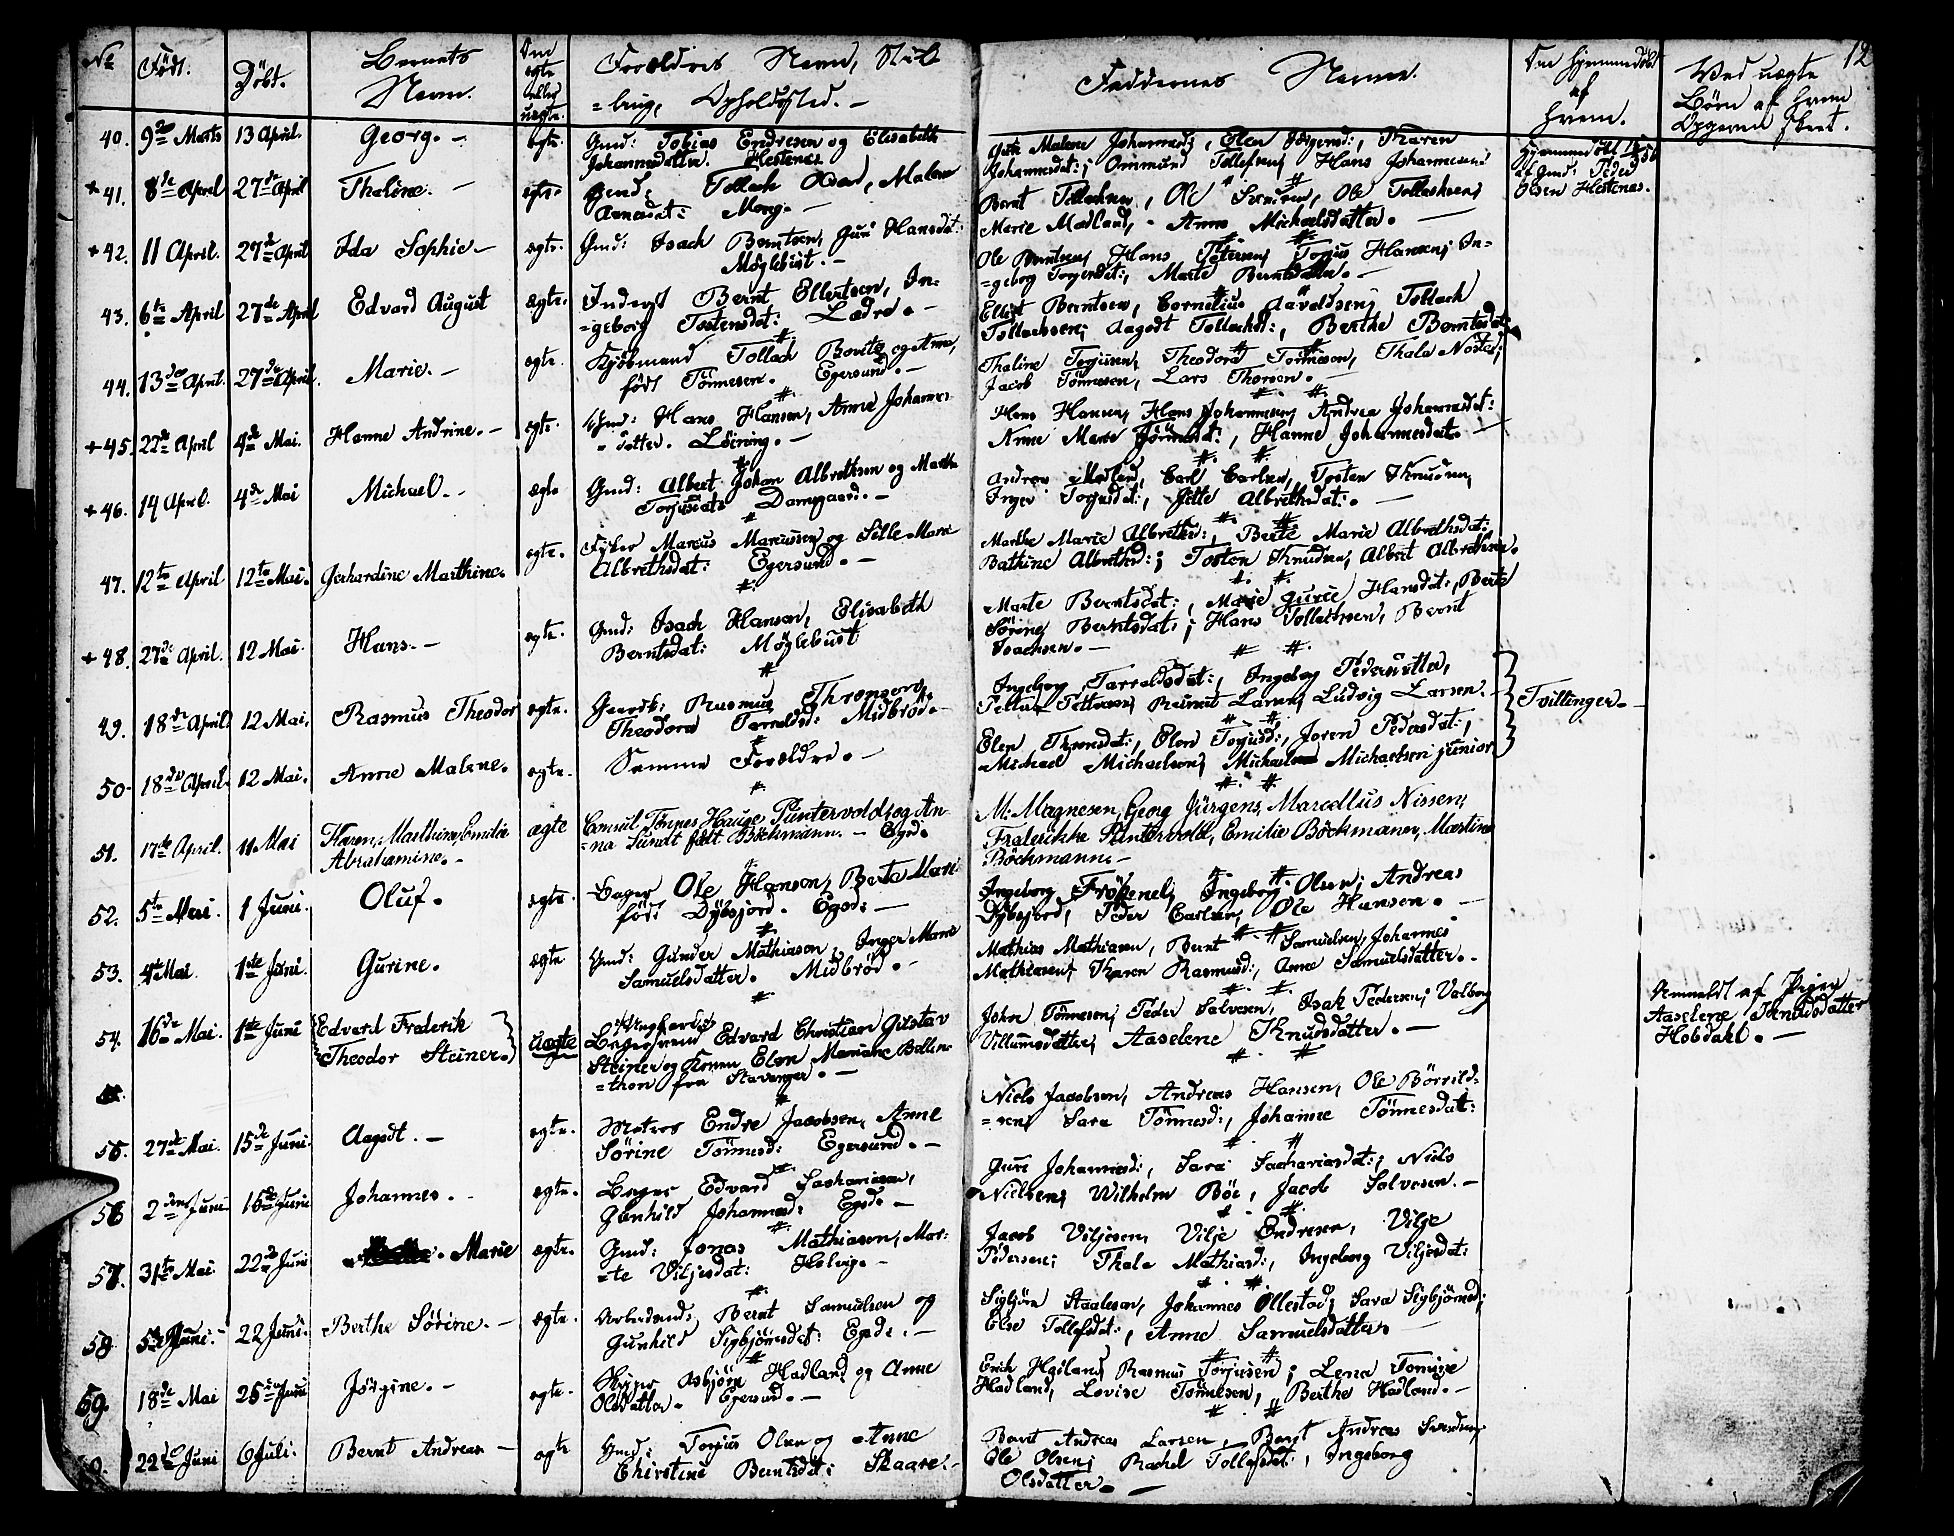 12
No Født. Døbt. Barnets Navn. Om ægte eller uægte. Forældres Navn, Stil-
=ling, Opholdssted. - Faddernes Navne. Om hjemmedøbt af hvem. Ved uægte Børn af hvem Opgaven skeet.
40. 9de Marts 13 April. Georg. - ægte. Gmd: Tobias Endresen og Elisabeth
Johannesdatter. Hestenes Malene Johannesd:, Elen Jørgensd:, Karen
Johannesdat:; Ommund Tollefsen, Hans Johannesens
Hjemmedøbt
af Gmd: Peder
Olsen Hestenes.
+ 41. 8de April 27de April Thaline. - ægte. Gmd: Tollach Olsen, Malene
Aanensdat: Mong. - Bernt Tollachsen, Ole Svendsen, Ole Tollachsen,
Marie Modland, Anne Michaelsdatter. -
+ 42. 11 April. 27de April Ida Sophie - ægte. Gmd: Isach Berntsen, Guri Hansdat:
Møglebust. - Ole Berntsen, Hans Petersen, Torjus Hansen, In-
=geborg Torgersdat:, Marte Berntsdatter. -
43. 6te April 27de April Edvard August ægte. Inderst Bernt Ellertsen, In-
=geborg Tostensdat: Lædre. - Ellert Berntsen, Cornelius Aavoldsen, Tollach
Tollachsen; Aagodt Tollachsd:, Berthe Berntsdat:
44. 13de April. 27de April. Marie. - ægte. Kjøbmand Tollach Bowitz og Anne,
født Tönnesen. Egersund. - Thaline Torjusen, Theodora Tönnesen, Thala Nodtet;
Jacob Tönnesen, Lars Thorsen. -
+ 45. 22de April 4de Mai. Hanne Andrine. - ægte. Gmd: Hans Hansen, Anne Johannes-
datter. Löining. - Hans Hansen, Hans Johannesen, Andrea Johannesdat:
Anne Marie Jörinesdat:, Hanne Johannesdat. -
+ 46. 14 April. 4de Mai Michael. - ægte Gmd: Albert Johan Albrethsen og Marthe
Torjusdat: Damgaard. - Andreas Modland, Carl Carlsen, Tosten Knudsen,
Inger Torjusdat:, Jitte Albrethsdat:. -
47. 12te April 12te Mai. Gerhardine Marthine. ægte. Fisker Marcus Marcussen og Sille Marie
Albrethsdat: Egersund. - Marthe Marie Albrethsd:, Berte Marie Albrethsdat:,
Bathine Albrethsd:; Tosten Knudsen, Albert Albrethsen.
+ 48. 27de April. 12 Mai. Hans. - ægte. Gmd: Isach Hansen, Elisabeth
Berntsdat: Møglebust Marte Berntsdat:, Marie Gurie Hansdat:, Berte
Sörine Berntsdat:; Hans Tollachsen, Bernt
Isachsen. -
49. 18de April 12 Mai. Rasmus Theodor ægte. Gaardb: Rasmus Thronsen,
Theodora Tarraldsd: Midbröd. - Ingeborg Tarraldsdat:, Ingeborg Pedersdatter,
Petter Pettersen, Rasmus Larsen, Ludvig Larsen. - Tvillinger. -
50. 18de April. 12 Mai. Anne Malene. ægte. Samme Forældre. - Elen Thronsdat:, Elen Torjusd:, Joren Pedersdat:,
Michael Michaelsen, Michael Michaelsen junior
51. 17de April. 11 Mai Karen, Marthine, Emilie
Abrahamine. - ægte Consul Tönnes Hauge Puntervold og An-
=na Sundt født Böckmann. - Egd. M. Magnesen, Georg Jürgens, Marcellus Nissen,
Frederikke Puntervold, Emilie Böckmann, Martine
Böckmann. -
52. 5te Mai. 1 Juni. Oluf. ægte. Bager Ole Hansen, Berta Marie
født Dybsjord. Egd: - Ingeborg Fröstenel, Ingeborg Olsen, Andreas
Dybsjord, Peder Carlsen, Ole Hansen. -
53. 4te Mai. 1ste Juni. Gurine. ægte Gmd: Gunder Mathiasen, Inger Marie
Samuelsdatter. Midbröd. - Mathias Mathiasen, Bernt Samuelsen, Johannes
Mathiasen, Karen Rasmusd:, Anne Samuelsdatter. -
54. 16de Mai. 1ste Juni Edverd Frederik
Theodor Steiner. uægte Ungkarl
Edvard Christian Gustav
Steiner og Konen Elen Mariane Bellin-
=thon fra Stavanger. - John Tönnesen, Peder Salvesen, Isak Pedersen; Valborg
Villumsdatter, Aaselene Knudsdatter. - Anmeldt af Pigen
Aaselene Knudsdatter
Hobdahl. -
55. 27de Mai. 15de Juni. Aagodt. - ægte. Matros Endre Jacobsen, Anne
Sörine Tönnesd: Egersund. - Niels Jacobsen, Andreas Hansen, Ole Börrild-
=sen, Sara Tönnesd:, Johanne Tönnesdat:
56 2den Juni 15de Juni Johannes. - ægte. Bager Edvard Sachariasen,
Gunhild Johannesd: Egd. - Guri Johannesd:, Sara Sachariasdat:; Niels
Nielsen, Wilhelm Böe, Jacob Salvesen. -
57. 31te Mai. 22de Juni Marie ægte. Gmd: Jonas Mathiasen, Mar-
=te Viljesdat: Helvig. - Jacob Viljesen, Vilje Endresen, Vilje
Pedersen; Thale Mathiasd:, Ingeborg Viljesdat:
58 5te Juni. 22 Juni. Berthe Sörine. - ægte. Arbeidsmd: Bernt Samuelsen og
Gunhild Sigbjörnsdat: Egd: - Sigbjörn Staalesen, Johannes Ollestad, Sara Sigbjörnsd:;
Else Tollefsdat:, Anne Samuelsdatter. -
59. 18de Mai 25de Juni Jörgine. - ægte. Asbjörn Hadland og Anne
Olsdatter. Egersund. - Erik Høiland, Rasmus Torjusen; Lena Tomine
Hadland, Lovise Tönnesen, Berthe Hadland. -
22de Juni 6 Juli. Bernt Andreas - ægte Gmd: Torjus Olsen og Anne
Christine Berntsdat: Skaare. - Berent Andreas Larsen, Bernt Andreas Svendsen,
Ole Olsen; Rachel Tollefsdat:, Ingeborg
Olsdatter. -